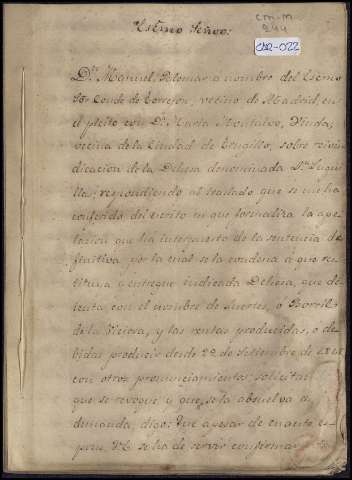 CM-M
244
C32-022
Escmo Señor:
Dn. Manuel Palomar a nombre del Escmo
Sor. Conde de Torrejon, vecino de Madrid, en
el pleito con Da. Maria Montalvo, Viuda,
vecina de la Ciudad de Trugillo, sobre reivin
dicacion de la Dehesa denominada
llas; respondiendo al traslado que se me ha
conferido del escrito en que formaliza la ape-
lacion que ha interpuesto de la sentencia de
finitiva por la cual se la condena á que res
tituya y entregue indicada Dehesa, que de
tenta con el nombre de Suertes, o Borril
de la Viciosa, y las rentas producidas, o de
bidas producir desde 22 de Setiembre de
con otros pronunciamientos: solicitan
que se revoque y que se la absuelva a
demanda, digo: Que apesar de cuanto es
pone, V.E. se ha de servir confirmar